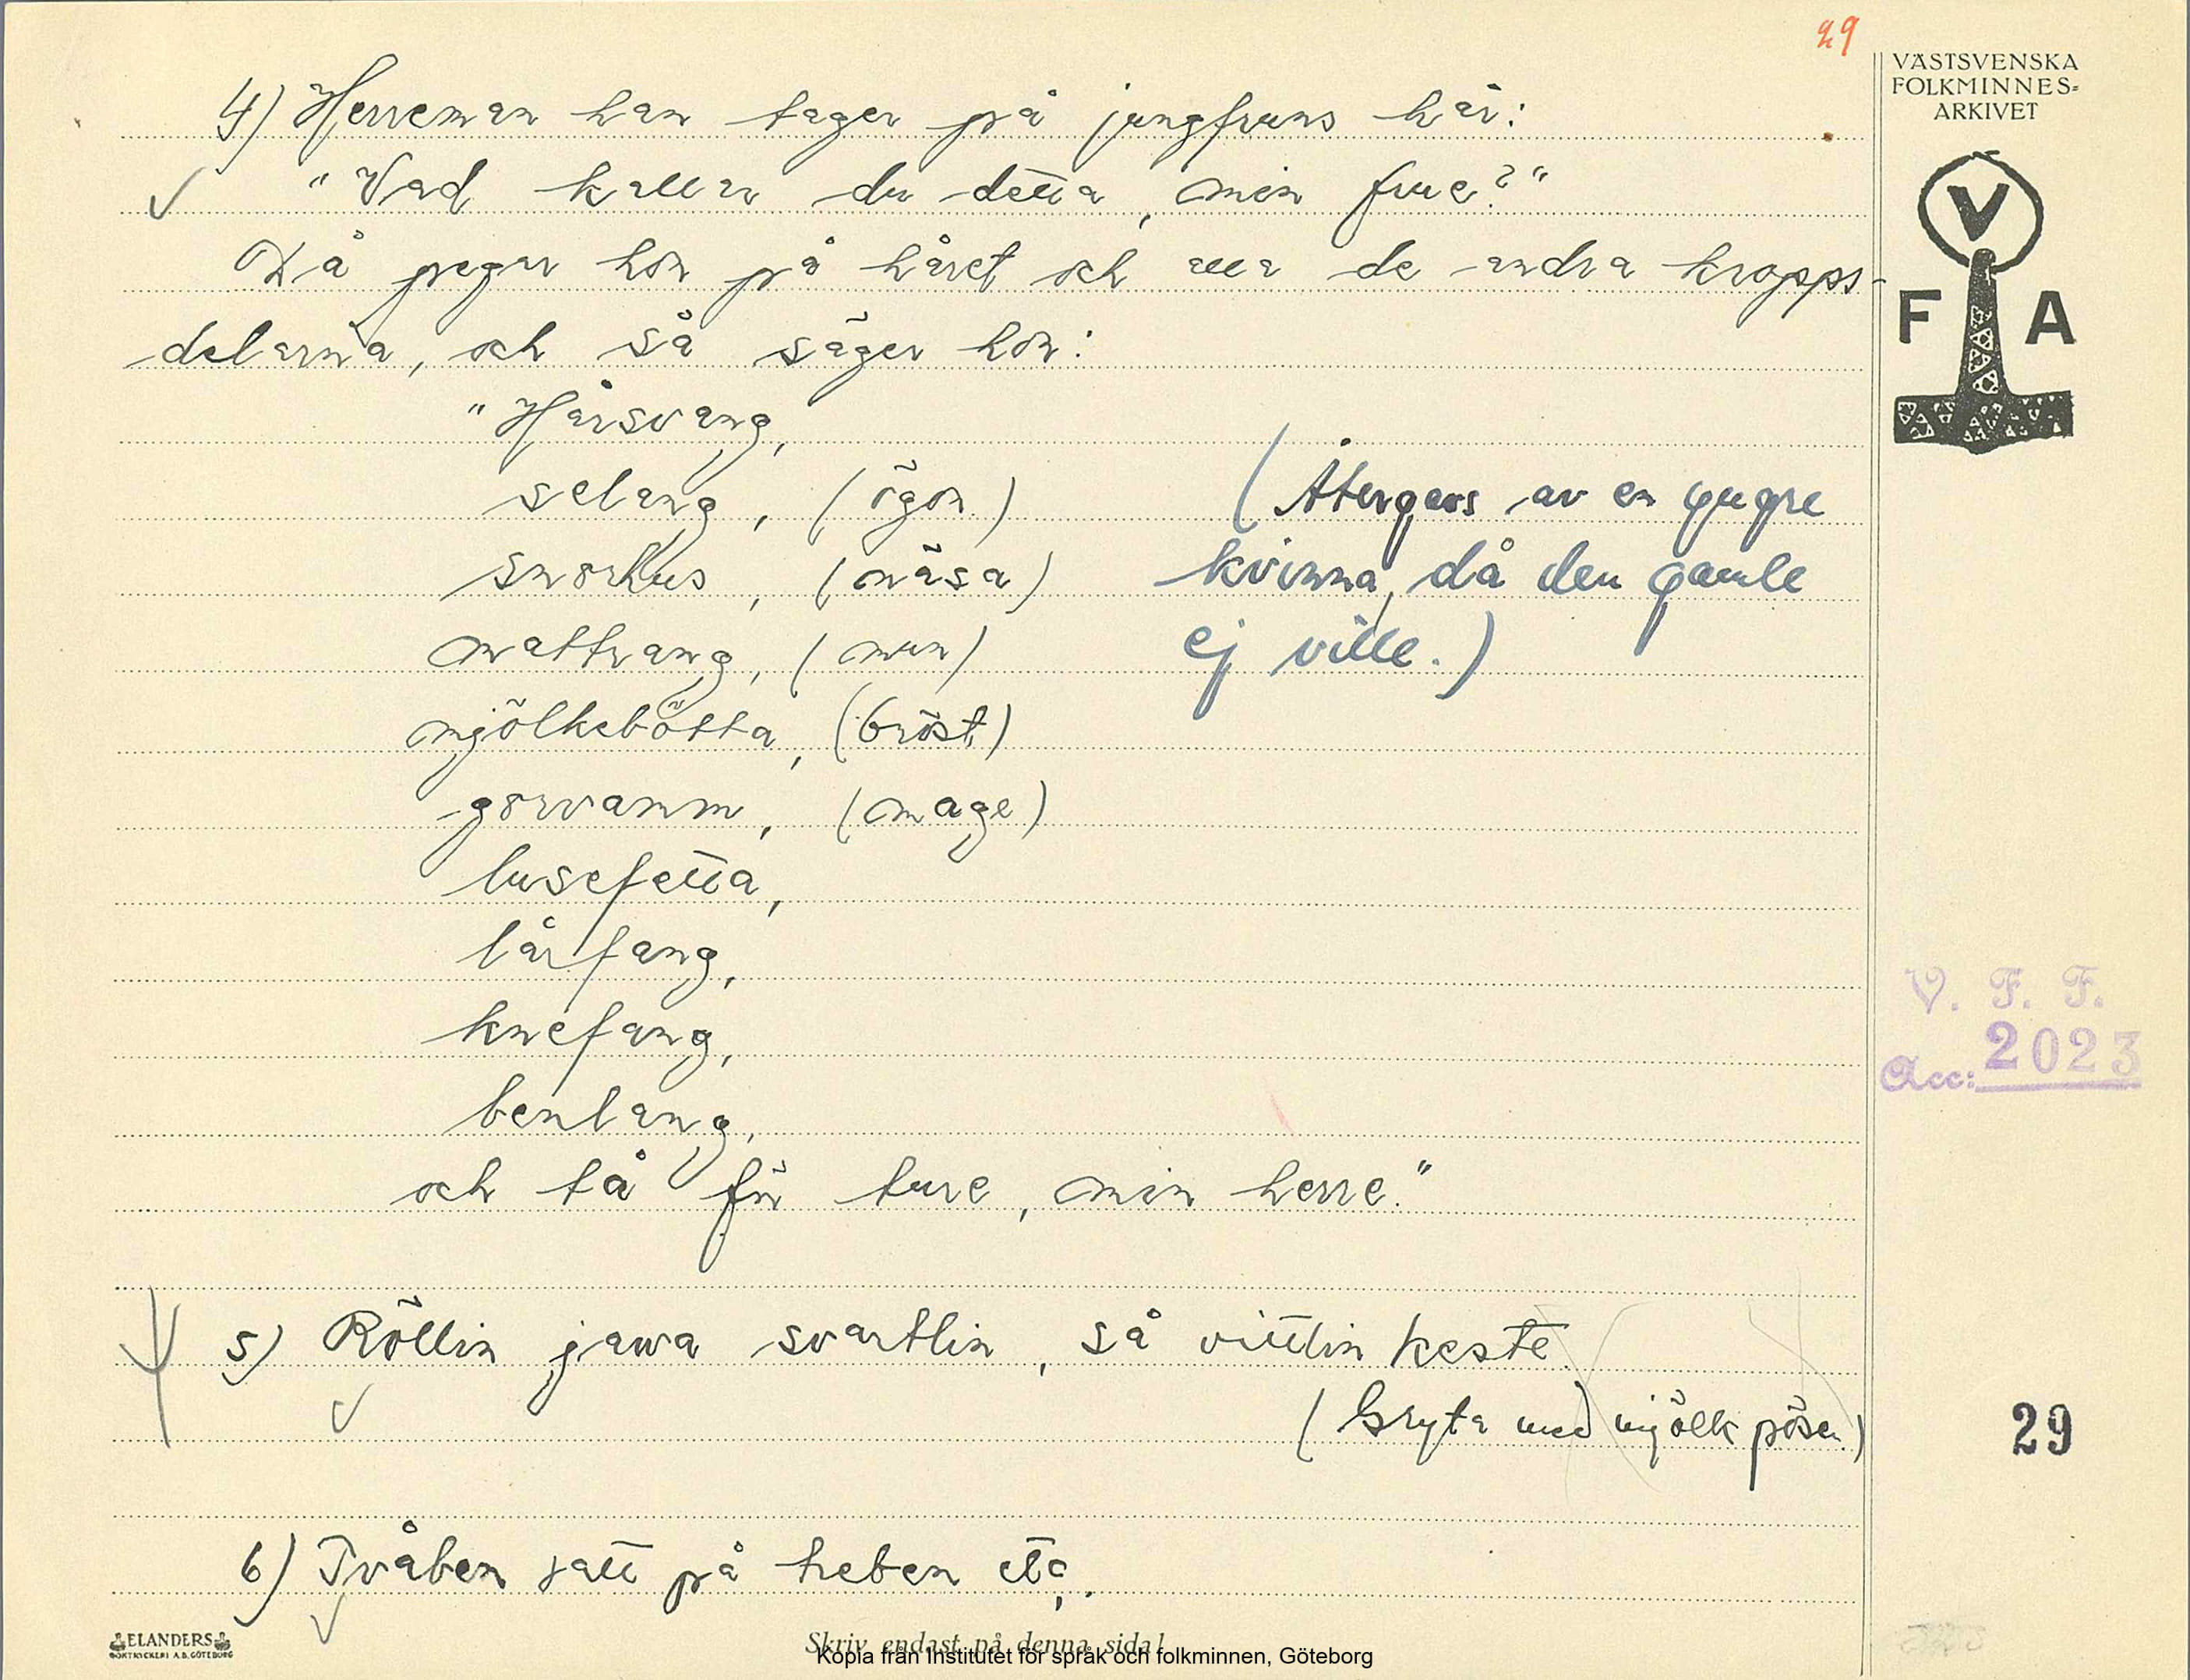 29
VÄSTSVENSKA
FOLKMINNES=
ARKIVET
V
F A
4) Herreman han tager på jungfruns hår:
"Vad kallar du detta, min frue?"
Då pegar hon på håret och alla de andra kropps-
delarna, och så säger hon:
"Hårsvang,
selang, (ögon)
snorhus, (näsa)
mattrang, (mun)
mjölkebötta, (bröst)
gorvamm, (mage)
lusefetta,
lårfang,
knefang,
benlang,
och tå för ture, min herre."
(Återgavs av en yngre
kvinna, då den gamle
ej ville.)
5) Röllin jawa svartlin, så vittlin keste.
(Gryta med mjölk pöser)
6) Tvåben satt på treben etc.
V. F. F.
Acc: 2023
29
ELANDERS
BOKTRYCKERI A.B. GÖTEBORG
Skriv endast på denna sida!
Kopia från Institutet för språk och folkminnen, Göteborg